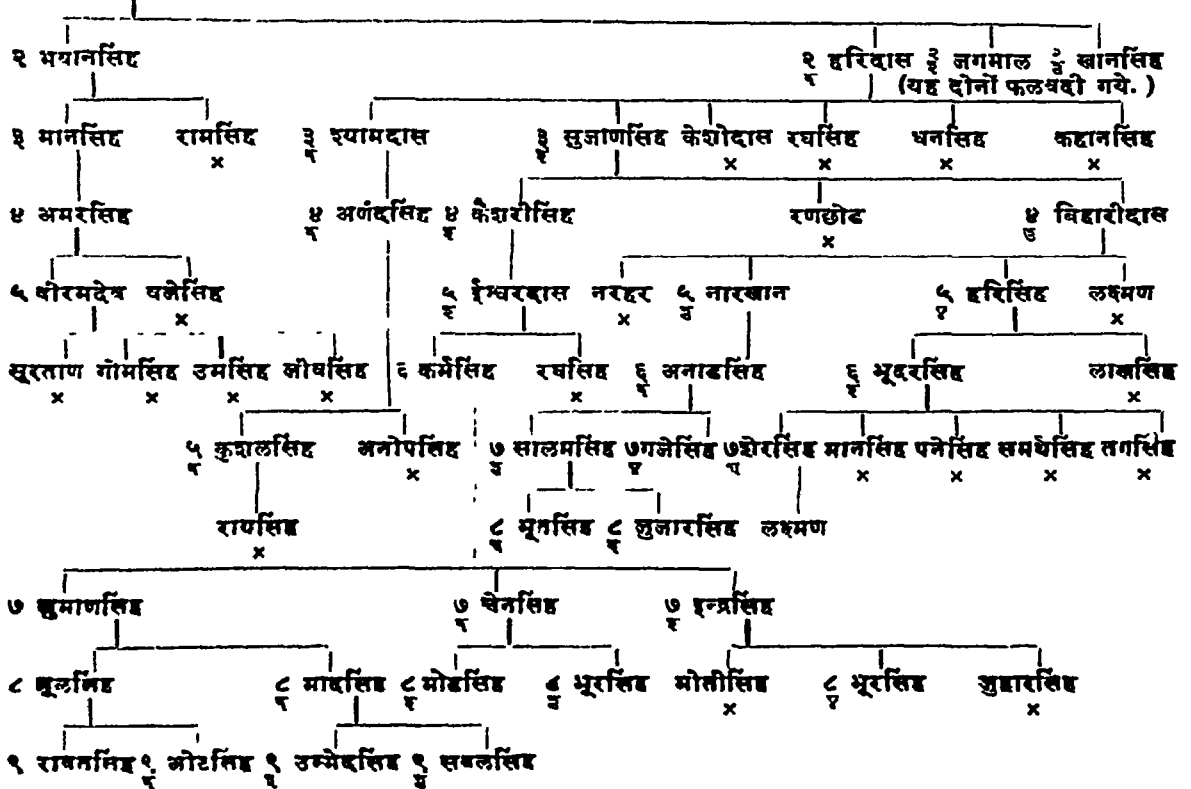 २ भयानसिंह २/१ हरिदास २/२ जगमाल २/३ खानसिंह
(यह दोनों फलवदी गये.)
३ मानसिंह रामसिंह ३/१ श्यामदास ३/२ सुजाणसिंह केशोदास रघसिंह धनसिंह कहानसिंह
× × × × ×
४ अमरसिंह ४/१ अणंदसिंह ४/२ केशरीसिंह रणछोड ४/३ विहारीदास
×
५ वीरमदेव ५/२ ईश्वरदास नरहर ५/३ नारखान ५/४ हरिसिंह लक्ष्मण
× × ×
सूरताण गोमसिंह उमसिंह ६ कर्मसिंह रघसिंह ६/१ अनाडसिंह ६/२ भूदरसिंह लाखसिंह
× × × × × ×
५/१ कुशलसिंह अनोपसिंह ७/३ सालमसिंह ७/४ गजेसिंह ७/५ शेरसिंह मानसिंह पनेसिंह समर्थसिंह तगसिंह
× × × × ×
रायसिंह लक्ष्मण
×
७ खुमाणसिंह ७/१ चेनसिंह ७/२ इन्द्रसिंह
८ ८/१ ८/२ मोडसिंह ८/३ भूरसिंह मोतीसिंह ८/४ भूरसिंह जुहारसिंह
× ×
९ रावतसिंह ९/१ ९/२ उम्मेदसिंह ९/३ सबलसिंह